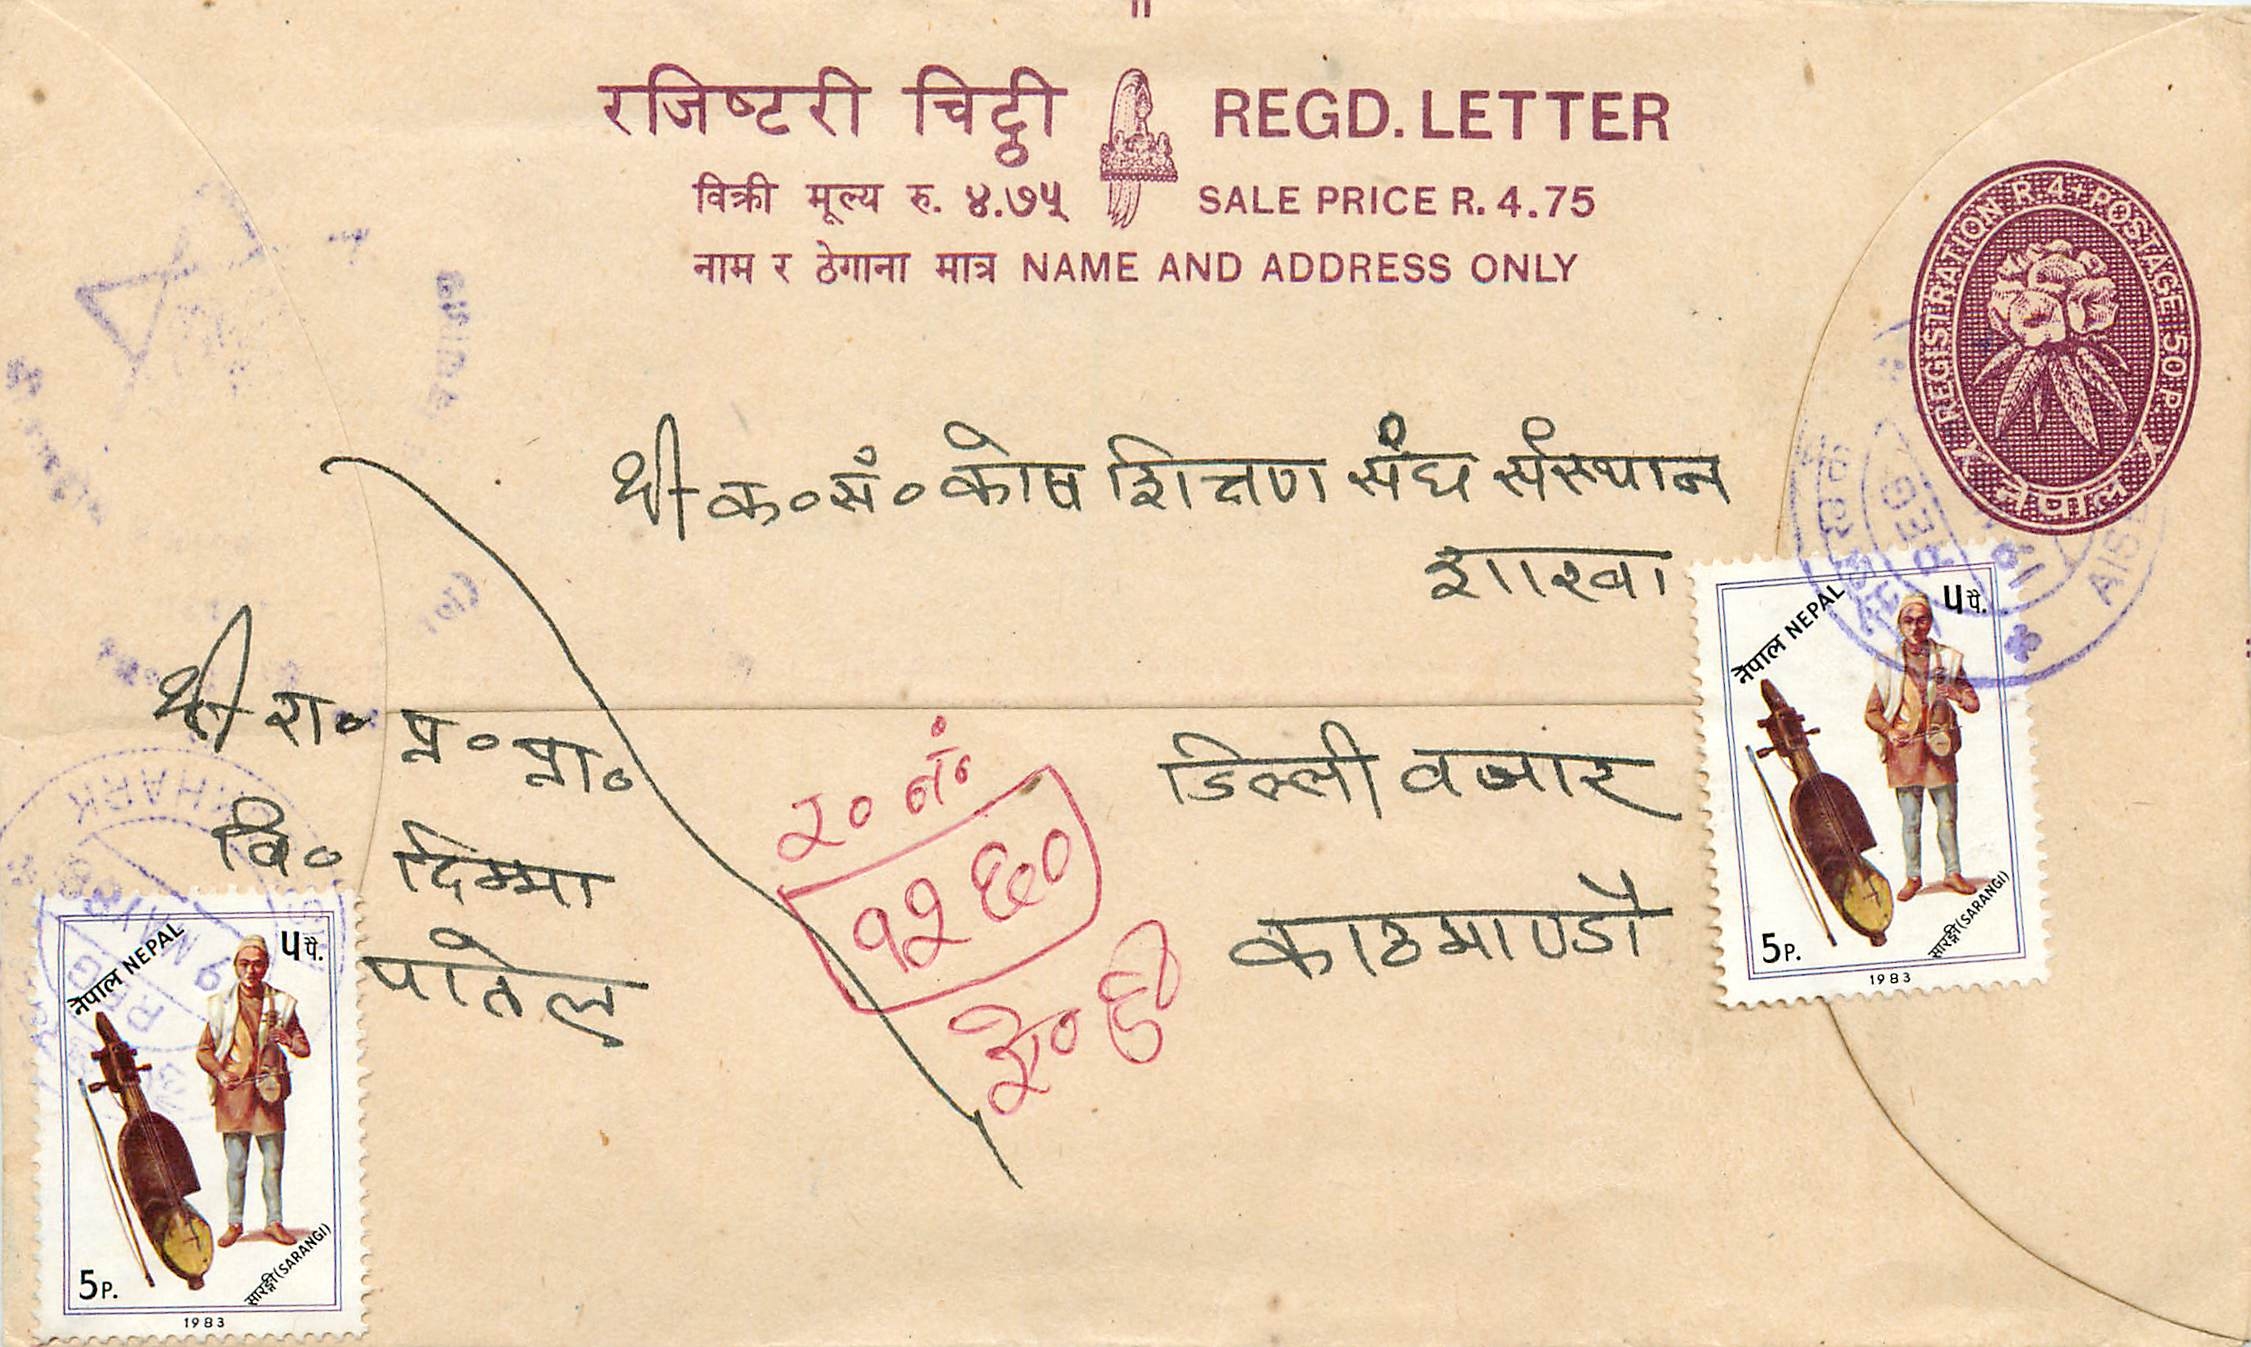 रजिष्टरी चिठ्ठी REGD. LETTER
विक्री मूल्य रु. ४.७५ SALE PRICE R. 4.75
नाम र ठेगाना मात्र NAME AND ADDRESS ONLY
REGISTRATION R.4+POSTAGE 50 P.
नेपाल
श्री क॰सं॰कोष शिक्षण संघ संस्थान
शाखा
डिल्ली वजार
काठमाण्डौ
श्री रा॰ प्र॰ प्रा॰
वि॰ दिम्मा
पातेल
र॰ नं॰
१२६०
नेपाल NEPAL
५ पै.
5 P.
सारङ्गी (SARANGI)
1983
नेपाल NEPAL
५ पै.
5 P.
सारङ्गी (SARANGI)
1983
REG
MAY 88